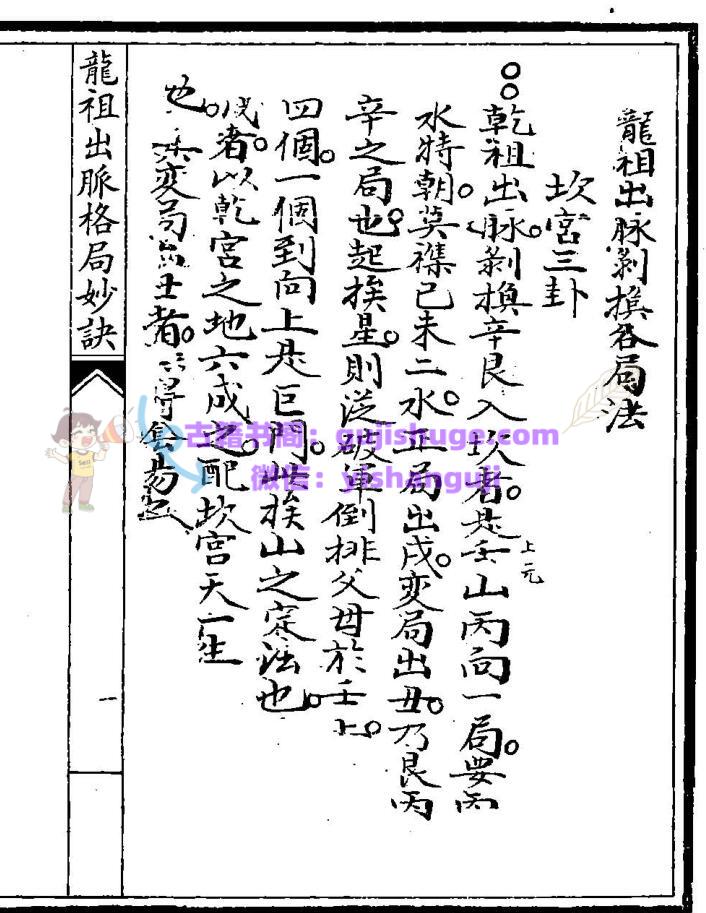 龍祖出脉剝換各局法
坎宮三卦
乾祖出脉。剝換辛艮入坎者。是壬山丙向一局。要丙
上元
水特朝。莫襍巳未二水。正局出戌。変局出丑。乃艮丙
辛之局也。起挨星。則從破軍倒排父母於壬上。
四個。一個到向上是巨門。此挨山之定法也。
戌者。以乾宮之地六成之。配坎宮天一生
也。変局出丑者。
龍祖出脈格局妙訣
一
古籍书阁：gujishuge.com
微信：yishanguji